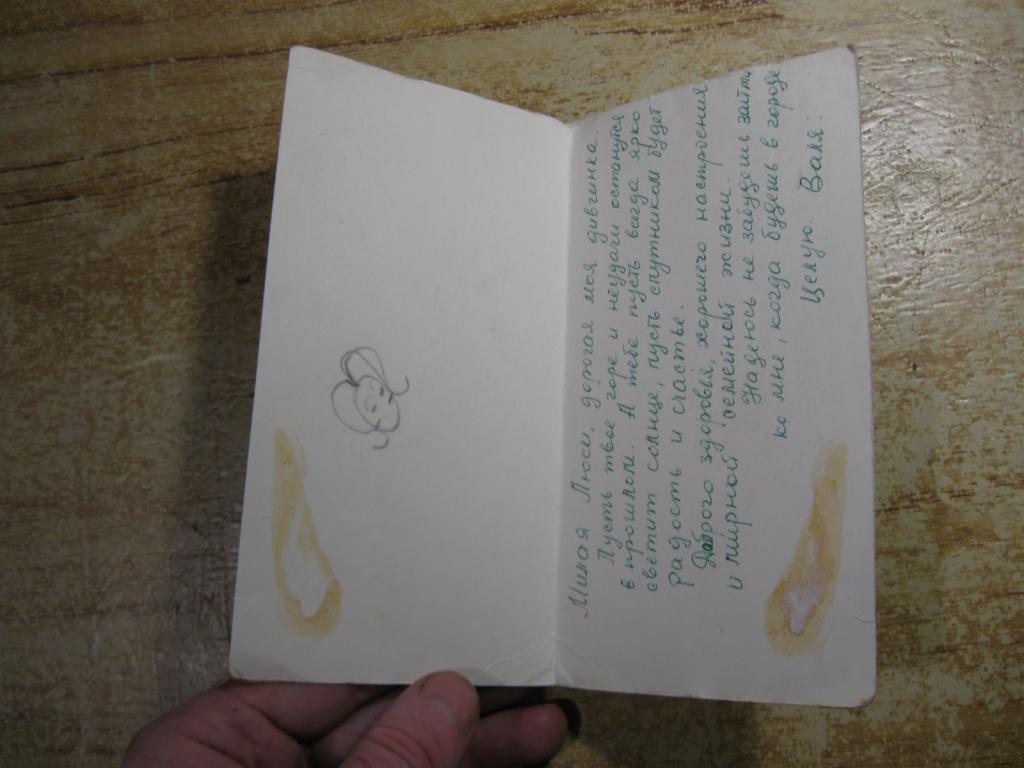 Милая Люси, дорогая моя дивчинка.
Пусть твое горе и неудачи останутся
в прошлом. А тебе пусть всегда ярко
светит солнце, пусть спутником будет
радость и счастье.
Доброго здоровья, хорошего настроения
и мирной семейной жизни.
Надеюсь не забудешь зайти
ко мне, когда будешь в городе
Целую. Валя.